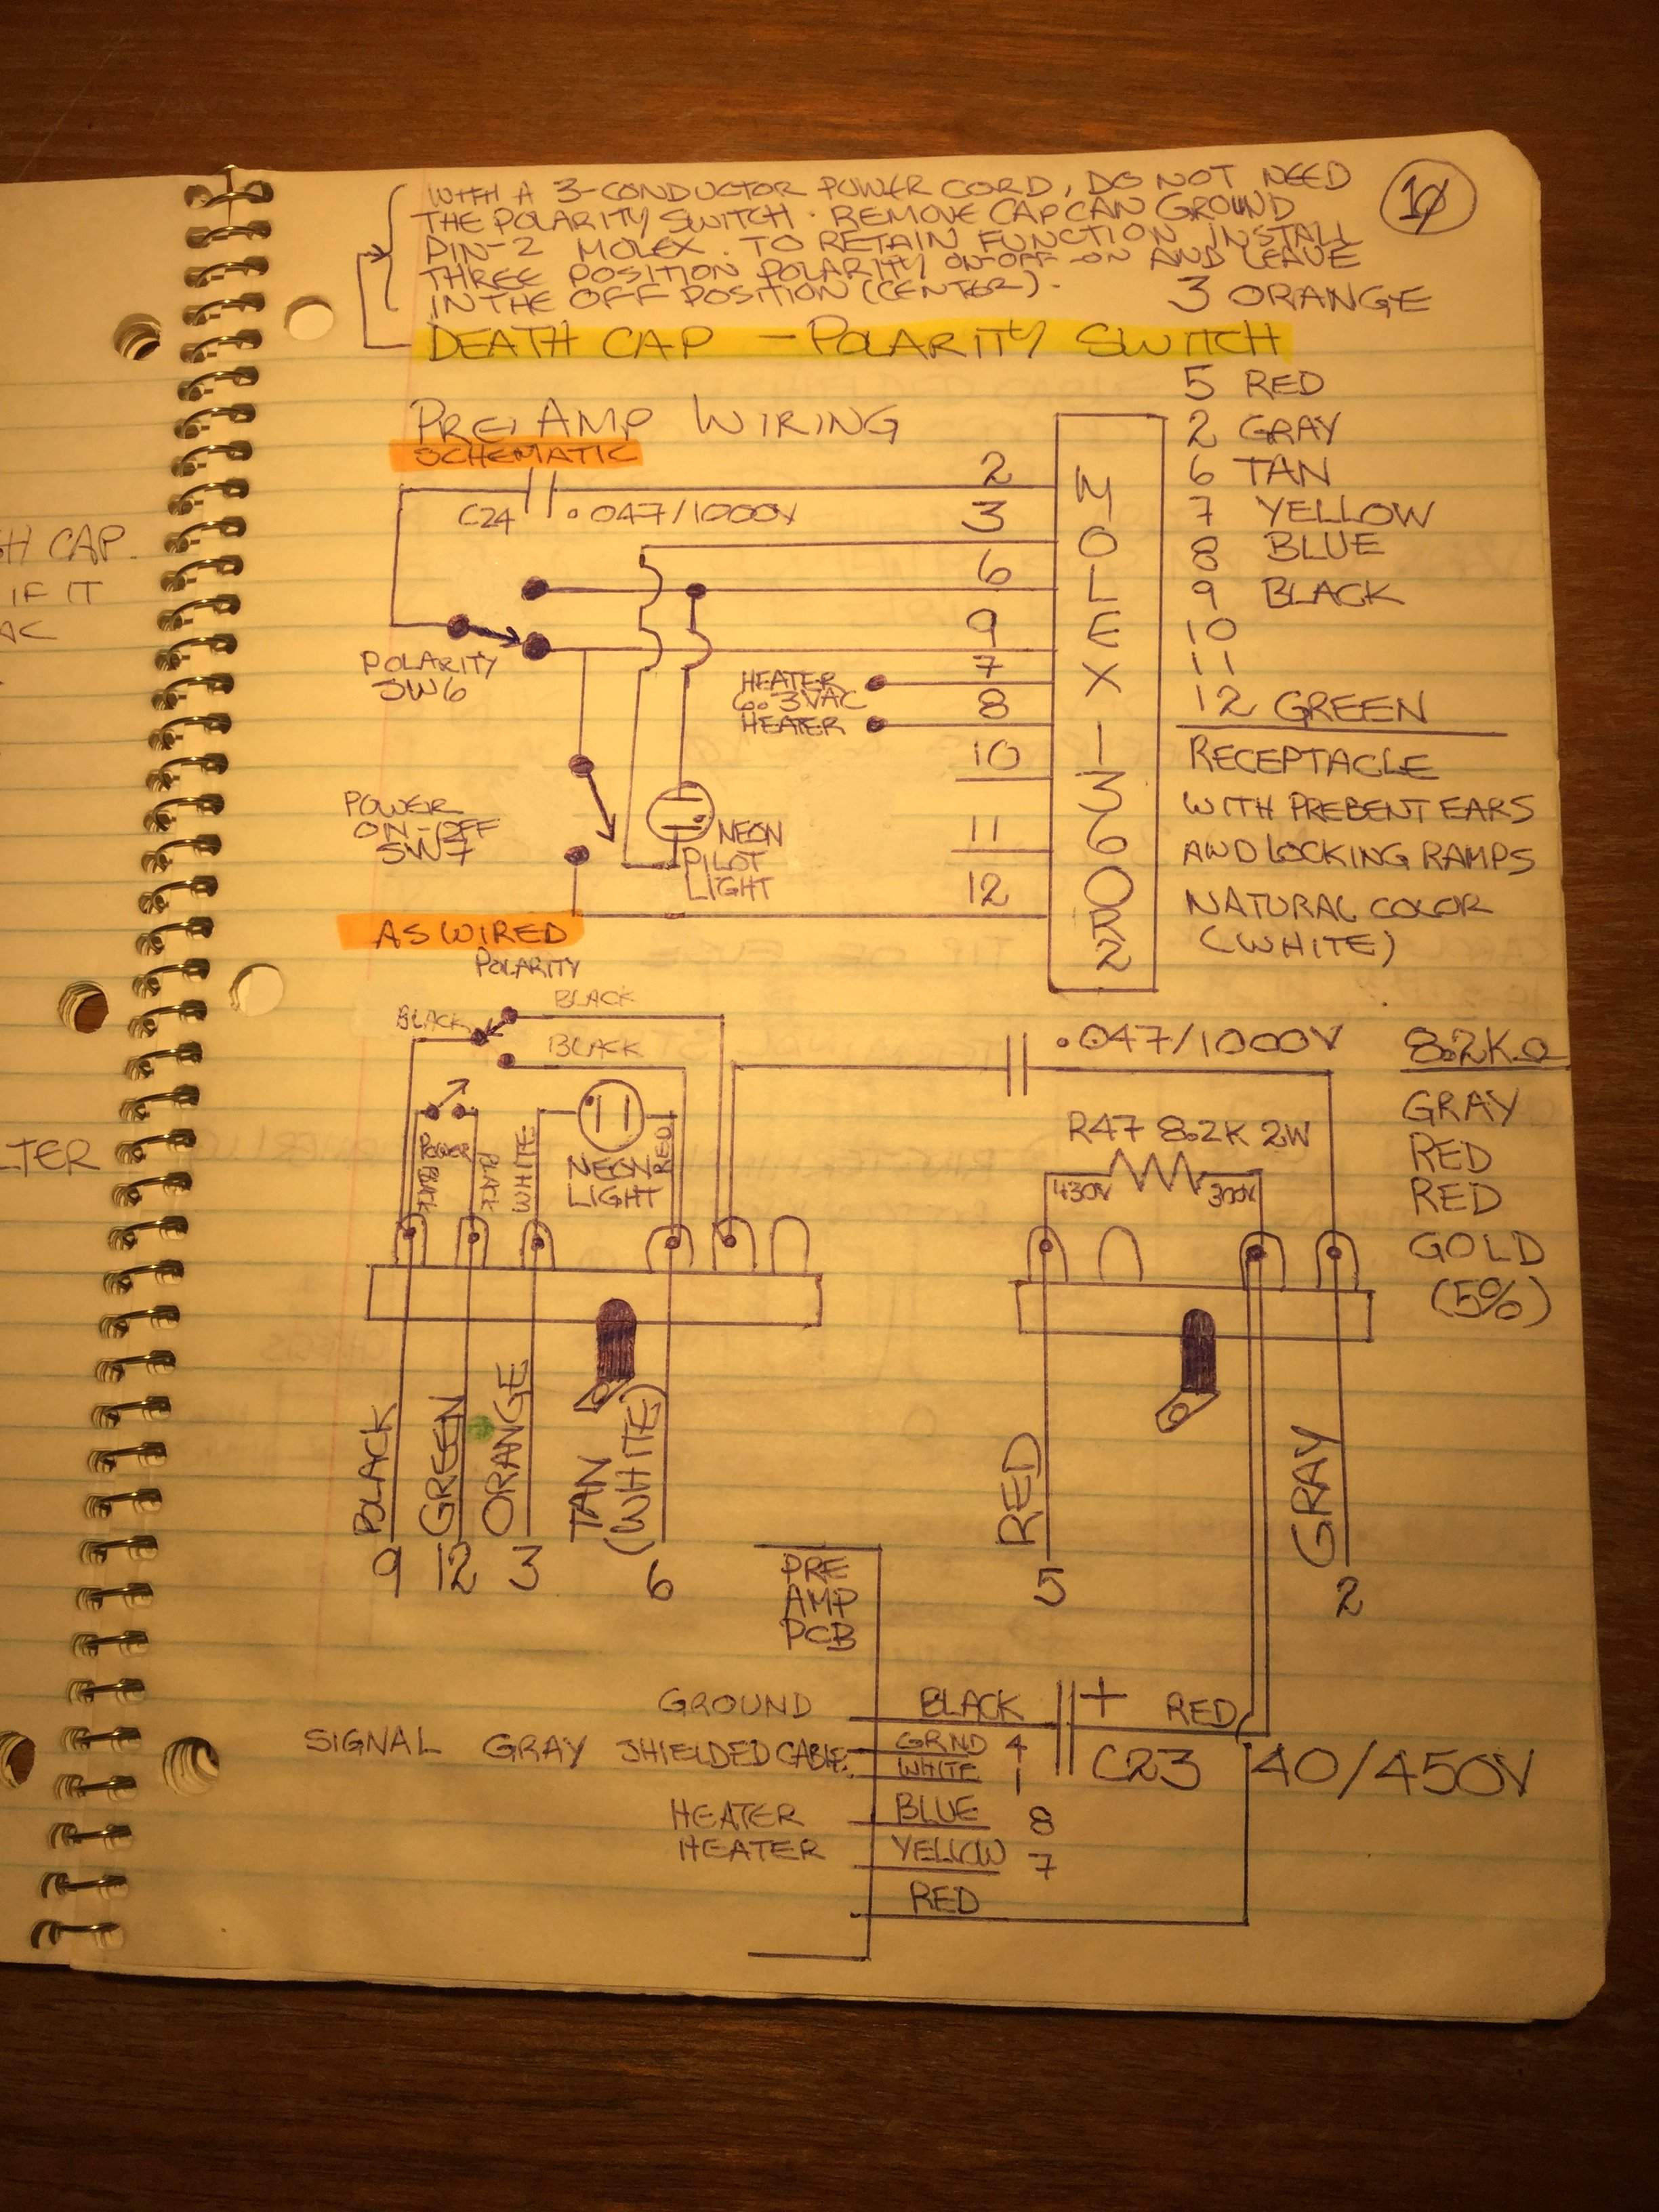 WITH A 3-CONDUCTOR POWER CORD, DO NOT NEED
THE POLARITY SWITCH. REMOVE CAP CAN GROUND
PIN-2 MOLEX. TO RETAIN FUNCTION INSTALL
THREE POSITION POLARITY ON-OFF-ON AND LEAVE
IN THE OFF POSITION (CENTER).
10
3 ORANGE
DEATH CAP - POLARITY SWITCH
5 RED
2 GRAY
6 TAN
7 YELLOW
8 BLUE
9 BLACK
10
11
12 GREEN
RECEPTACLE
WITH PREBENT EARS
AND LOCKING RAMPS
NATURAL COLOR
(WHITE)
PRE AMP WIRING
SCHEMATIC
C24 .047/1000V
2
3
6
9
7
8
10
11
12
MOLEX 1360R2
POLARITY
SW6
HEATER
6.3VAC
HEATER
POWER
ON-OFF
SW7
NEON
PILOT
LIGHT
AS WIRED
POLARITY
BLACK
BLACK
BLACK
POWER
BLACK
BLACK
WHITE
NEON
LIGHT
RED
.047/1000V
R47 8.2K 2W
430V
300V
8.2KΩ
GRAY
RED
RED
GOLD
(5%)
BLACK
GREEN
ORANGE
TAN
(WHITE)
RED
GRAY
9
12
3
6
5
2
PRE
AMP
PCB
GROUND BLACK + RED
SIGNAL GRAY SHIELDED CABLE GRND 4
WHITE 1
C23 40/450V
HEATER BLUE 8
HEATER YELLOW 7
RED
H CAP.
IF IT
AC
LTER